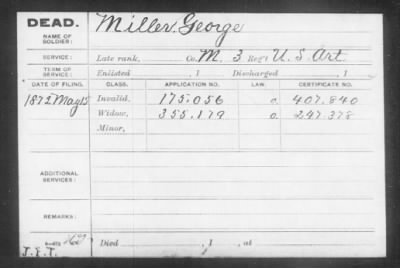 DEAD. Miller George
NAME OF SOLDIER:
SERVICE: Late rank, Co. M. 3 Reg't U.S. Art.
TERM OF SERVICE: Enlisted , 1 Discharged , 1
DATE OF FILING. CLASS. APPLICATION NO. LAW. CERTIFICATE NO.
1872 May 15 Invalid, 175.056 o. 407.840
Widow, 355.179 o. 247.378
Minor,
ADDITIONAL SERVICES:
REMARKS:
Died , 1 , at